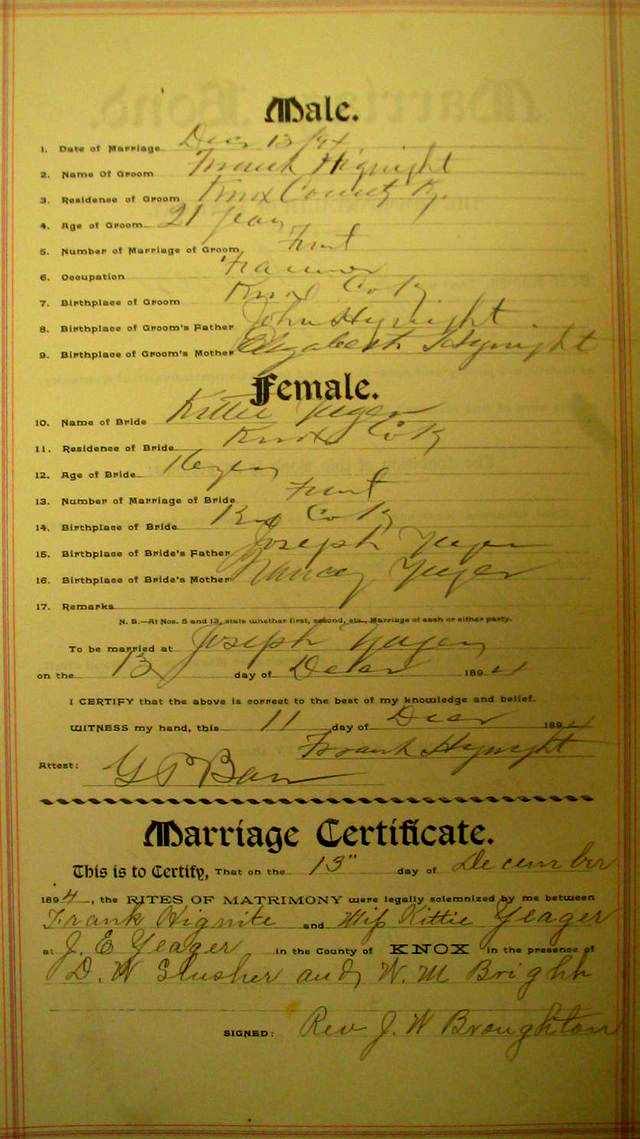 Male.
1. Date of Marriage Dec 13/94
2. Name Of Groom Frank Hignight
3. Residence of Groom Knox County Ky.
4. Age of Groom 21 years
5. Number of Marriage of Groom First
6. Occupation Farmer
7. Birthplace of Groom Knox Co Ky
8. Birthplace of Groom's Father John Hynight
9. Birthplace of Groom's Mother Elizabeth Hynight
Female.
10. Name of Bride Kittie Yeger
11. Residence of Bride Knox Co Ky
12. Age of Bride
13. Number of Marriage of Bride First
14. Birthplace of Bride Knox Co Ky
15. Birthplace of Bride's Father Joseph Yeger
16. Birthplace of Bride's Mother Nancy Yeger
17. Remarks
N. B.—At Nos. 5 and 13, state whether first, second, etc., Marriage of each or either party.
To be married at Joseph Yagers
on the 13 day of Decr 1894
I CERTIFY that the above is correct to the best of my knowledge and belief.
WITNESS my hand, this 11 day of Decr 1894
Frank Hynight
Attest:
Marriage Certificate.
This is to Certify, That on the 13" day of December
1894, the RITES OF MATRIMONY were legally solemnized by me between
Frank Hignite and Miss Kittie Yeager
at J. E Yeager in the County of KNOX in the presence of
D. W Slusher and W. M
SIGNED: Rev J. W Broughton